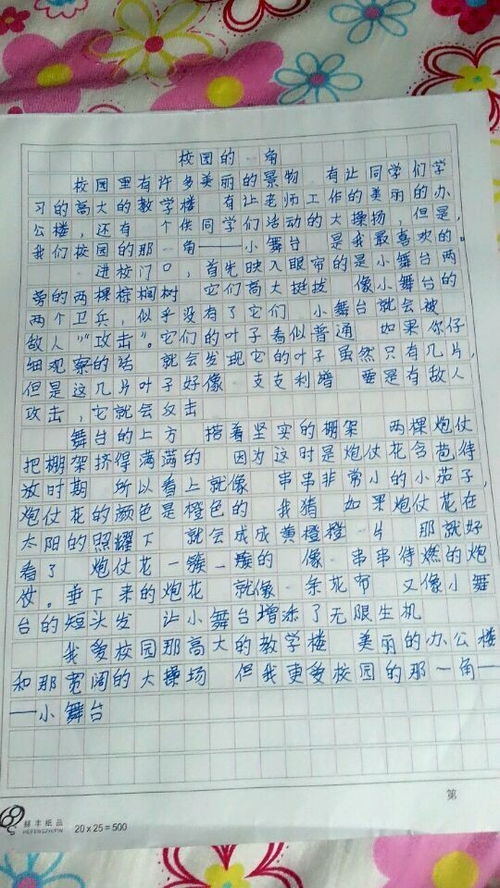 校园的一角
校园里有许多美丽的景物 有让同学们学
习的高大的教学楼 有让老师工作的美丽的办
公楼，还有 个供同学们活动的大操扬，但是，
我们校园的那一角——小舞台 是我最喜欢的。
进校门口，首先映入眼帘的是小舞台两
旁的两棵棕榈树 它们高大挺拔 像小舞台的
两个卫兵，似乎没有了它们 小舞台就会被
敌人“攻击”。它们的叶子看似普通 如果你仔
细观察的话 就会发现它的叶子虽然只有几片，
但是这几片叶子好像 支支利 要是有敌人
攻击，它就会反击
舞台的上方 搭着坚实的棚架 两棵炮仗
把棚架挤得满满的 因为这时是炮仗花含苞待
放时期 所以看上就像 串串非常小的小茄子，
炮仗花的颜色是橙色的 我猜 如果炮仗花在
太阳的照耀下 就会成成黄橙橙一片 那就好
看了 炮仗花一簇一簇的 像一串串待燃的炮
仗。垂下来的炮花 就像一条花布 又像小舞
台的短头发 让小舞台增添了无限生机
我爱校园那高大的教学楼 美丽的办公楼
和那宽阔的大操场 但我更爱校园的那一角—
—小舞台
第
纸品
20 x 25 = 500